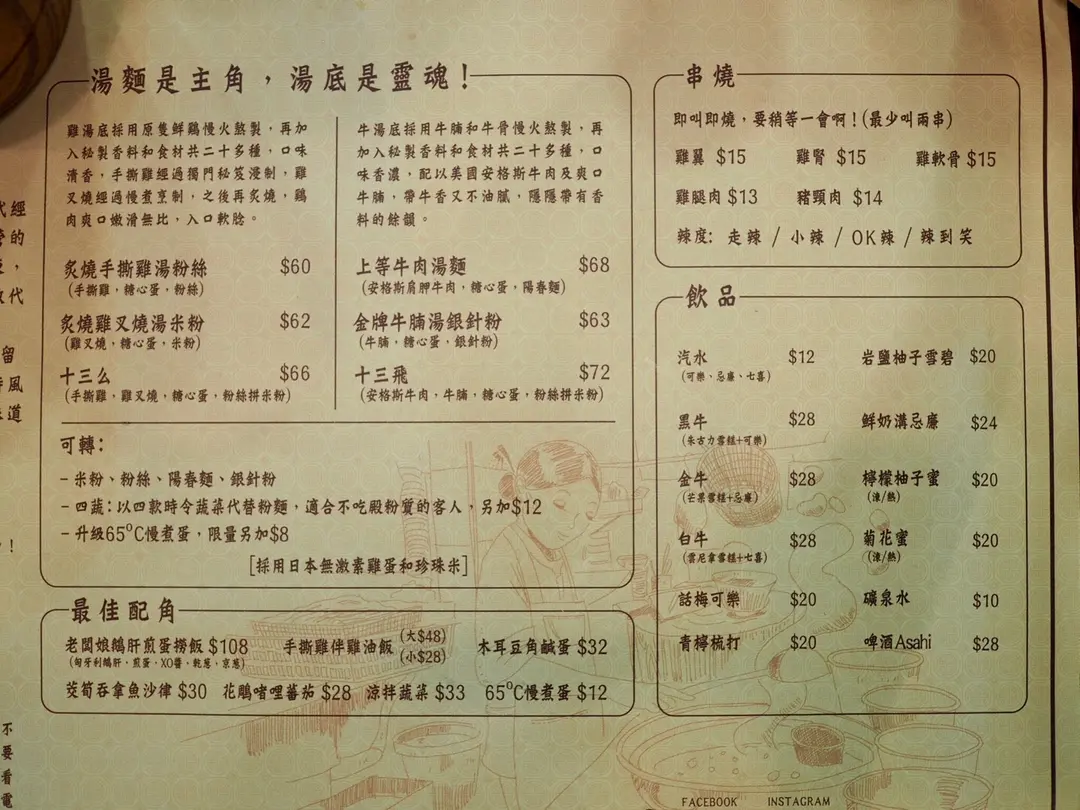 湯麵是主角，湯底是靈魂！
雞湯底採用原隻鮮鷄慢火熬製，再加
入秘製香料和食材共二十多種，口味
清香，手撕雞經過獨門秘笈浸制，雞
叉燒經過慢煮烹制，之後再炙燒，鷄
肉爽口嫩滑無比，入口軟脍。
炙燒手撕雞湯粉絲 $60
(手撕雞，糖心蛋，粉絲)
炙燒雞叉燒湯米粉 $62
(雞叉燒，糖心蛋，米粉)
十三么 $66
(手撕雞，雞叉燒，糖心蛋，粉絲拼米粉)
牛湯底採用牛腩和牛骨慢火熬製，再
加入秘製香料和食材共二十多種，口
味香濃，配以美國安格斯牛肉及爽口
牛腩，帶牛香又不油膩，隱隱帶有香
料的餘韻。
上等牛肉湯麵 $68
(安格斯肩胛牛肉，糖心蛋，陽春麵)
金牌牛腩湯銀針粉 $63
(牛腩，糖心蛋，銀針粉)
十三飛 $72
(安格斯牛肉，牛腩，糖心蛋，粉絲拼米粉)
可轉：
- 米粉、粉絲、陽春麵、銀針粉
- 四蔬：以四款時令蔬菜代替粉麵，適合不吃殿粉質的客人，另加$12
- 升級65°C慢煮蛋，限量另加$8
[採用日本無激素雞蛋和珍珠米]
最佳配角
老闆娘鵝肝煎蛋撈飯 $108 手撕雞伴雞油飯 (大$48) (小$28) 木耳豆角鹹蛋 $32
(匈牙利鵝肝，煎蛋，XO醬，乾葱，京葱)
茭筍吞拿魚沙律 $30 花鵰啫哩蕃茄 $28 涼拌蔬菜 $33 65°C慢煮蛋 $12
串燒
即叫即燒，要稍等一會啊！(最少叫兩串)
雞翼 $15 雞腎 $15 雞軟骨 $15
雞腿肉 $13 豬頸肉 $14
辣度： 走辣 / 小辣 / OK辣 / 辣到笑
飲品
汽水 $12 岩鹽柚子雪碧 $20
(可樂、忌廉、七喜)
黑牛 $28 鮮奶溝忌廉 $24
(朱古力雪糕+可樂)
金牛 $28 檸檬柚子蜜 $20
(芒果雪糕+忌廉) (凍/熱)
白牛 $28 菊花蜜 $20
(雲尼拿雪糕+七喜) (凍/熱)
話梅可樂 $20 礦泉水 $10
青檸梳打 $20 啤酒Asahi $28
FACEBOOK INSTAGRAM
代經
的
，
代
留
風
道
！
不
要
看
電